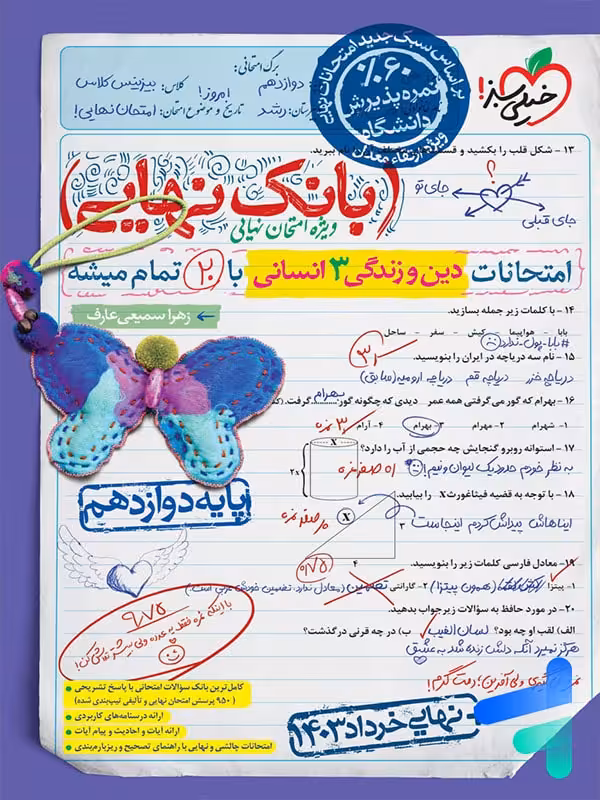 خیلی سبز!
برگ امتحانی:
دوازدهم
امروز!
کلاس: بیزینس کلاس
رشد
تاریخ و موضوع امتحان: امتحان نهایی!
بر اساس سبک جدید امتحانات نهایی
٪۶۰
نمره پذیرش
دانشگاه
ویژه ارتقاء معدل
۱۳ - شکل قلب را بکشید و
نام ببرید.
؟
جای تو
جای قبلی
بانک نهایی
ویژه امتحان نهایی
امتحانات دین و زندگی ۳ انسانی با ۲۰ تمام میشه
زهرا سمیعی عارف
۱۴ - با کلمات زیر جمله بسازید.
بابا - هواپیما - کیش - سفر - ساحل
#بابا-پول-ندارد
۱۵ - نام سه دریاچه در ایران را بنویسید.
دریاچه خزر دریاچه قم دریاچه ارومیه (سابق)
۱۶ - بهرام که گور می‌گرفتی همه عمر دیدی که چگونه گور بهرام گرفت.
۱- شهرام ۲- مهرام ۳- بهرام ۴- آرام
۱۷ - استوانه روبرو گنجایش چه حجمی از آب را دارد؟
به نظر خودم حدود یک لیوان و نیم!
X
۲x
۱۸ - با توجه به قضیه فیثاغورث X را بیابید.
ایناهاش پیداش کردم اینجاست
X
۳
۴
پایه دوازدهم
۱۹ - معادل فارسی کلمات زیر را بنویسید.
۱- پیتزا
(همون پیتزا)
۲- گارانتی
تضمین (معادل ندارد، تضمین خودش عربی است.)
۲۰ - در مورد حافظ به سؤالات زیر جواب بدهید.
الف) لقب او چه بود؟ لسان الغیب
ب) در چه قرنی درگذشت؟
هرگز نمیرد آنکه دلش زنده شد به عشق
۹/۷۵
ولی آفرین! دمت گرم!
کامل‌ترین بانک سؤالات امتحانی با پاسخ تشریحی
(۹۵۰ پرسش امتحان نهایی و تألیفی تیپ‌بندی شده)
ارائه درسنامه‌های کاربردی
ارائه آیات و احادیث و پیام آیات
امتحانات چالشی و نهایی با راهنمای تصحیح و ریزبارم‌بندی
+ نهایی خرداد ۱۴۰۳